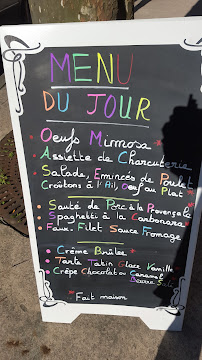 MENU
DU JOUR
Oeufs Mimosa
Assiette de Charcuterie
Salade, Emincés de Poulet
Croûtons à l'Ail, Oeuf au Plat
Sauté de Porc à la Provençale
Spaghetti à la Carbonara
Faux. Filet Sauce Fromage
Crème Brûlée
Tarte Tatin Glace Vanille
Crêpe Chocolat ou Caramel
Beurre Salé
*Fait maison